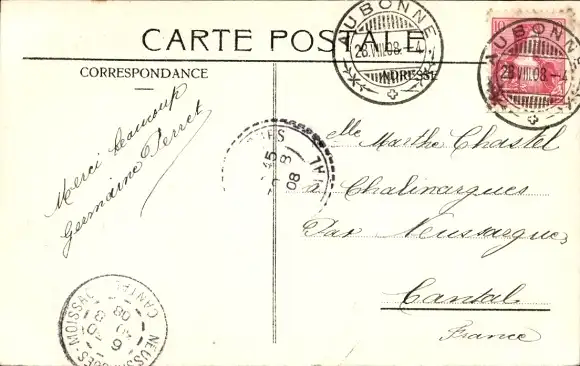 CARTE POSTALE
CORRESPONDANCE
ADRESSE
AUBONNE
28.VIII.08.-4
AUBONNE
28.VIII.08.-4
10
Merci beaucoup
Germaine Perret
Mlle Marthe Chastel
à Chalinargues
Par Neussargues
Cantal
France
45
8
08
NEUSSARGUES-MOISSAC
CANTAL